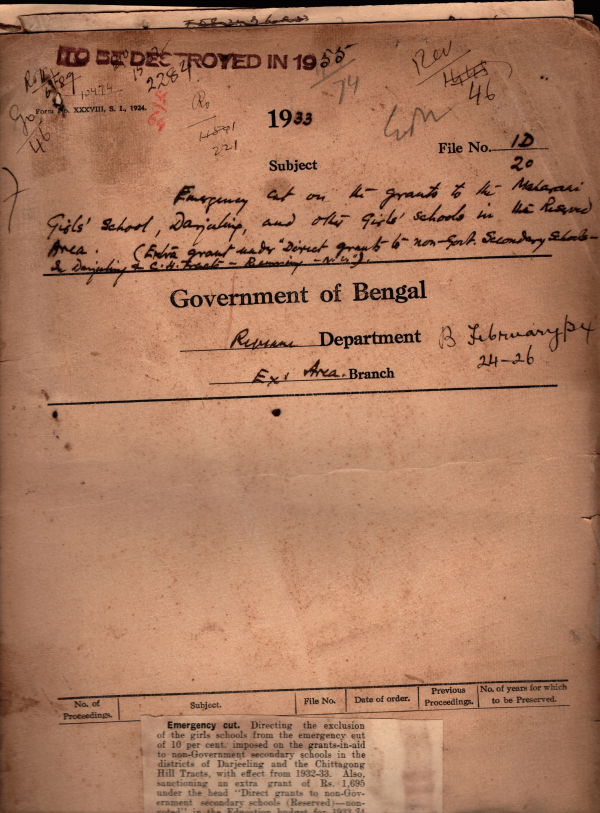 TO BE DESTROYED IN 1955
2284
74
Rev
46
Form No. XXXVIII, S. I., 1924.
46
221
1933
File No. 1D
20
Subject
Emergency cut on the grants to the Maharani
Girls' School, Darjeeling, and other Girls' schools in the Reserved
Area. (Extra grant under "Direct grants to non-Govt. Secondary Schools -
Darjeeling & C. H. Tracts - Reserved
Government of Bengal
Revenue Department
B February 34
24-26
Ex: Area. Branch
No. of Proceedings.
Subject.
File No.
Date of order.
Previous Proceedings.
No. of years for which to be Preserved.
Emergency cut. Directing the exclusion
of the girls schools from the emergency cut
of 10 per cent. imposed on the grants-in-aid
to non-Government secondary schools in the
districts of Darjeeling and the Chittagong
Hill Tracts, with effect from 1932-33. Also,
sanctioning an extra grant of Rs. 1,695
under the head "Direct grants to non-Gov-
ernment secondary schools (Reserved)—non-
voted" in the Education budget for 1933-34